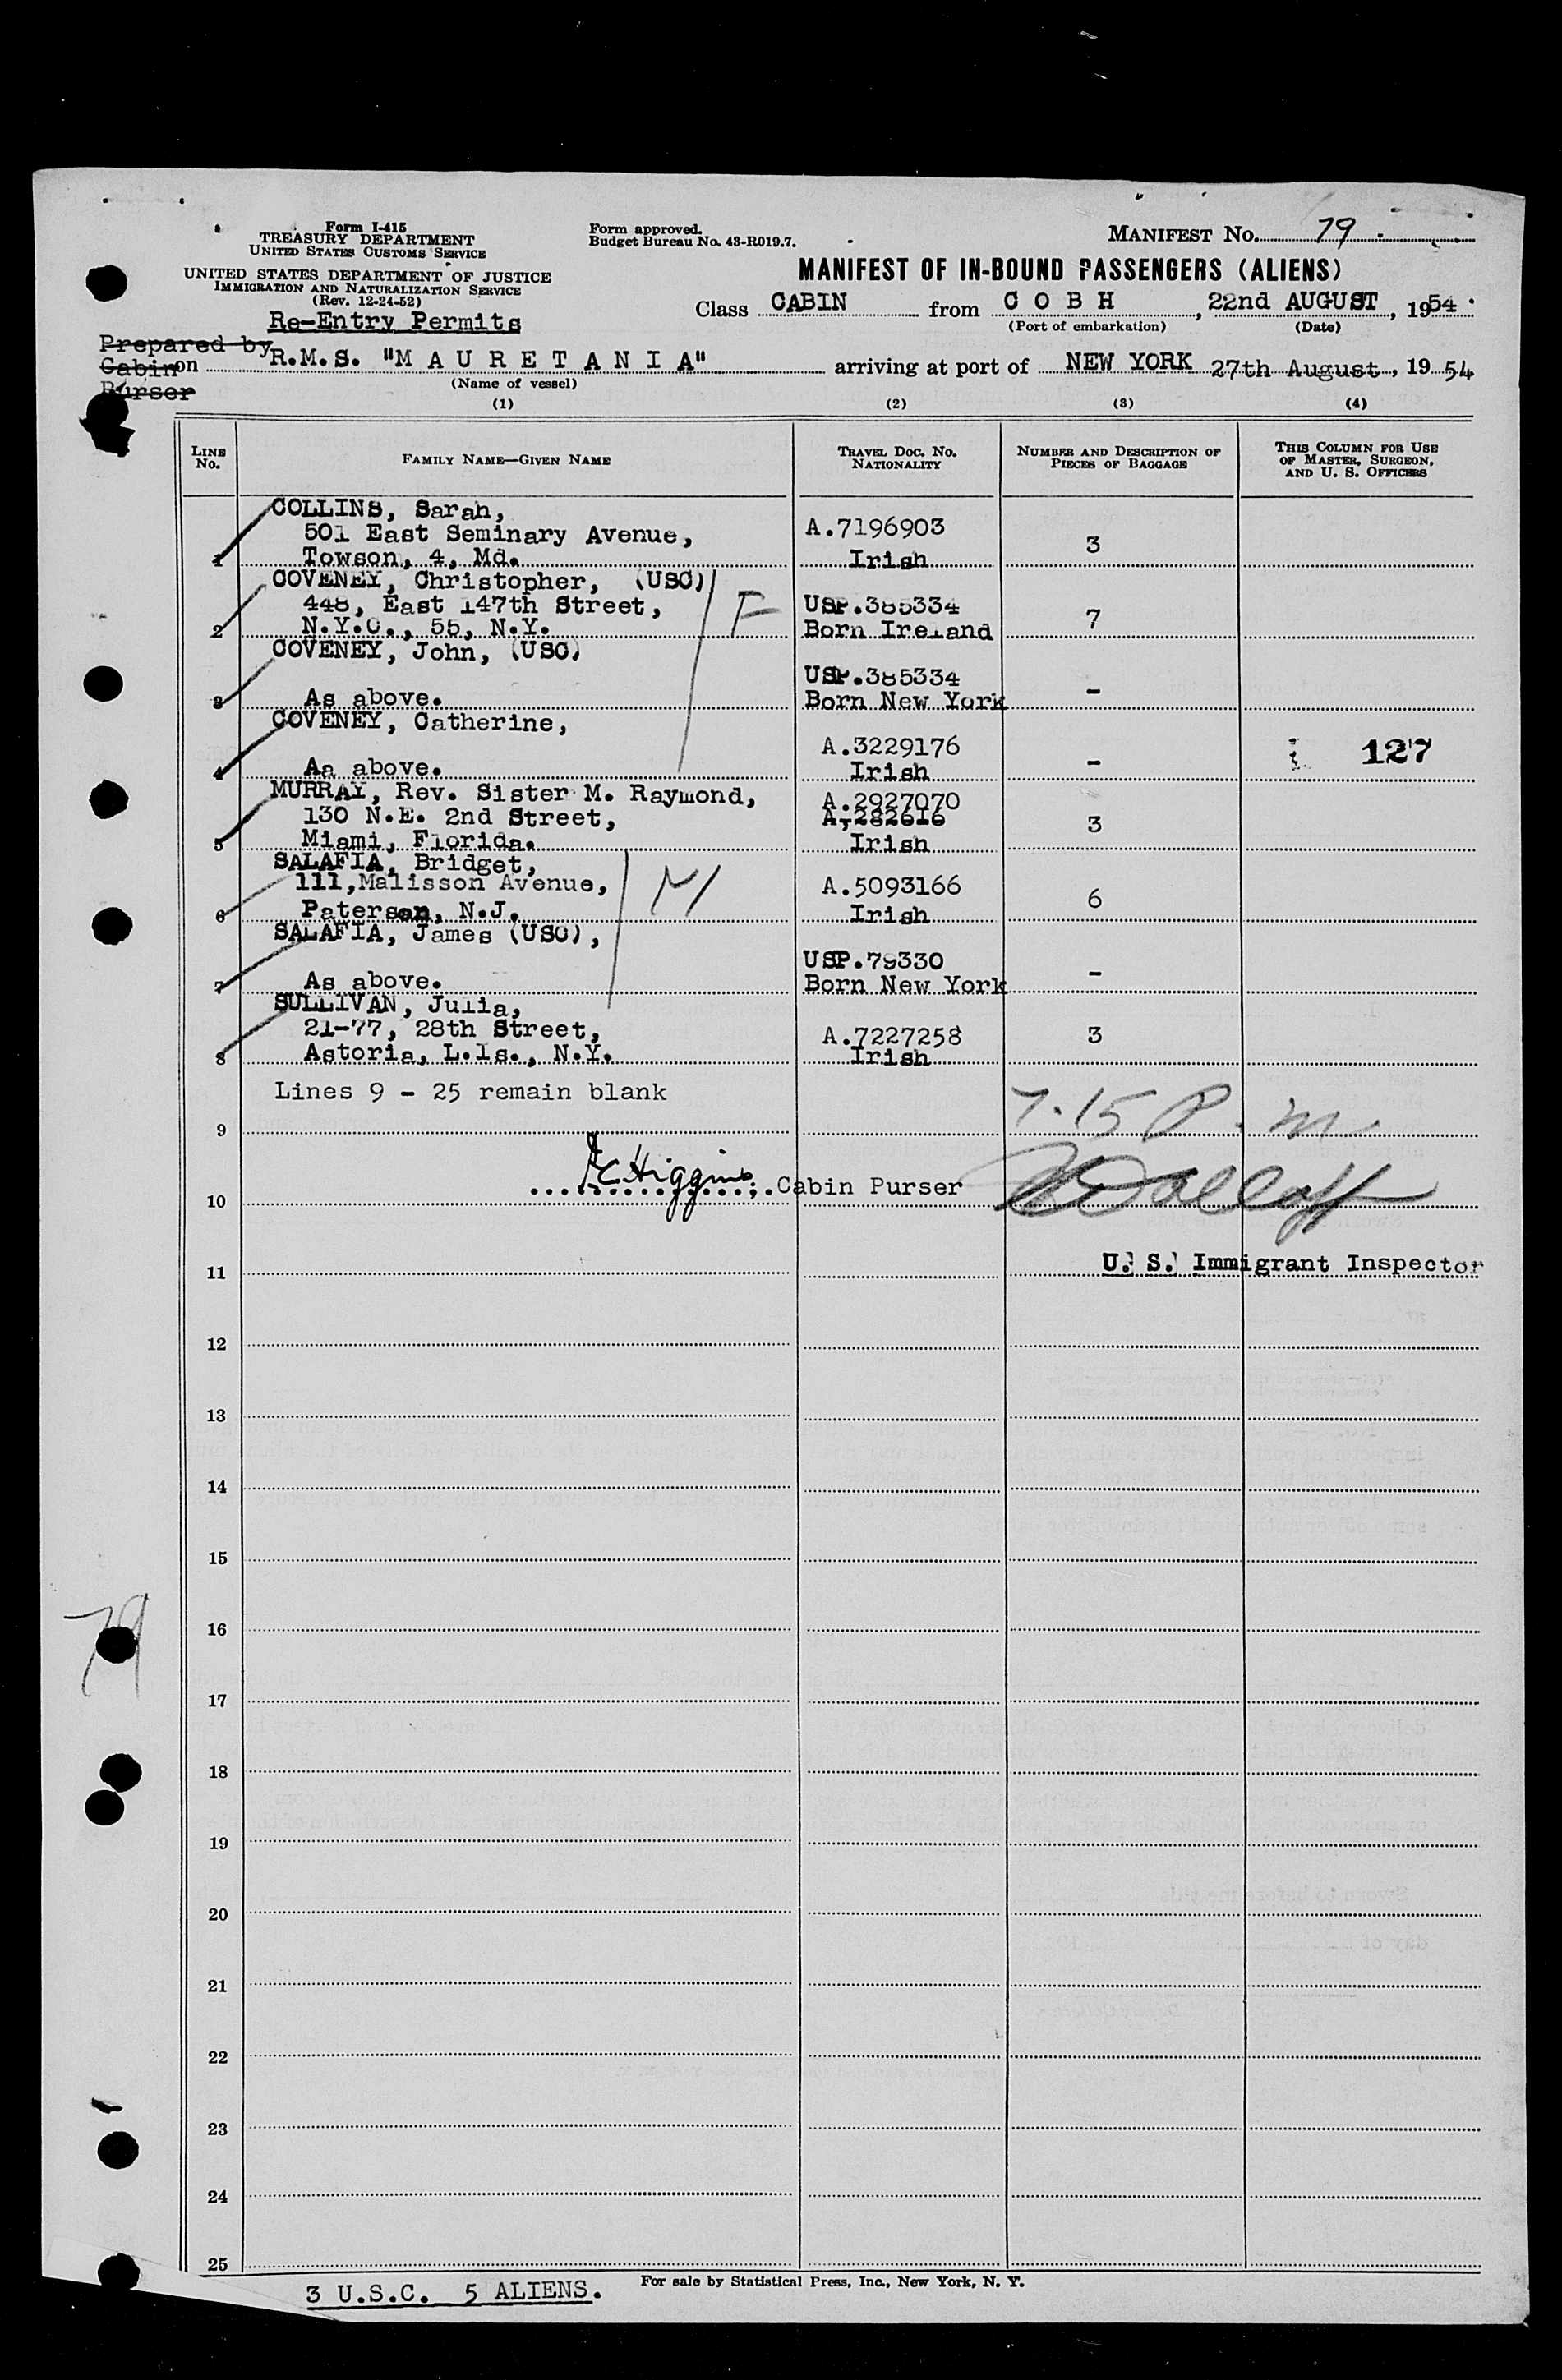 Form I-415
TREASURY DEPARTMENT
UNITED STATES CUSTOMS SERVICE
UNITED STATES DEPARTMENT OF JUSTICE
IMMIGRATION AND NATURALIZATION SERVICE
(Rev. 12-24-52)
Re-Entry Permits
Form approved.
Budget Bureau No. 43-R019.7.
MANIFEST No. 79
MANIFEST OF IN-BOUND PASSENGERS (ALIENS)
Class CABIN from C O B H, 22nd AUGUST, 1954
(Port of embarkation) (Date)
Prepared by
Cabin
Purser
on R.M.S. "M A U R E T A N I A" arriving at port of NEW YORK 27th August, 1954
(Name of vessel)
(1) (2) (3) (4)
LINE No. FAMILY NAME—GIVEN NAME TRAVEL DOC. NO. NATIONALITY NUMBER AND DESCRIPTION OF PIECES OF BAGGAGE THIS COLUMN FOR USE OF MASTER, SURGEON, AND U. S. OFFICERS
COLLINS, Sarah,
501 East Seminary Avenue, A.7196903
1 Towson, 4, Md. Irish 3
COVENEY, Christopher, (USC)
448, East 147th Street, F USP.385334
2 N.Y.C., 55, N.Y. Born Ireland 7
COVENEY, John, (USC)
USP.385334
3 As above. Born New York -
COVENEY, Catherine,
A.3229176 127
4 Aa above. Irish -
MURRAY, Rev. Sister M. Raymond, A.2927070
130 N.E. 2nd Street, A,282616
5 Miami, Florida. Irish 3
SALAFIA, Bridget,
111,Malisson Avenue, M A.5093166
6 Paterson, N.J. Irish 6
SALAFIA, James (USC),
USP.79330
7 As above. Born New York -
SULLIVAN, Julia,
21-77, 28th Street, A.7227258 3
8 Astoria, L.Is., N.Y. Irish
Lines 9 - 25 remain blank
7.15 P.m.
9
Higgins Cabin Purser
10
11 U. S. Immigrant Inspector
12
13
14
15
16
79
17
18
19
20
21
22
23
24
25
3 U.S.C. 5 ALIENS.
For sale by Statistical Press, Inc., New York, N. Y.